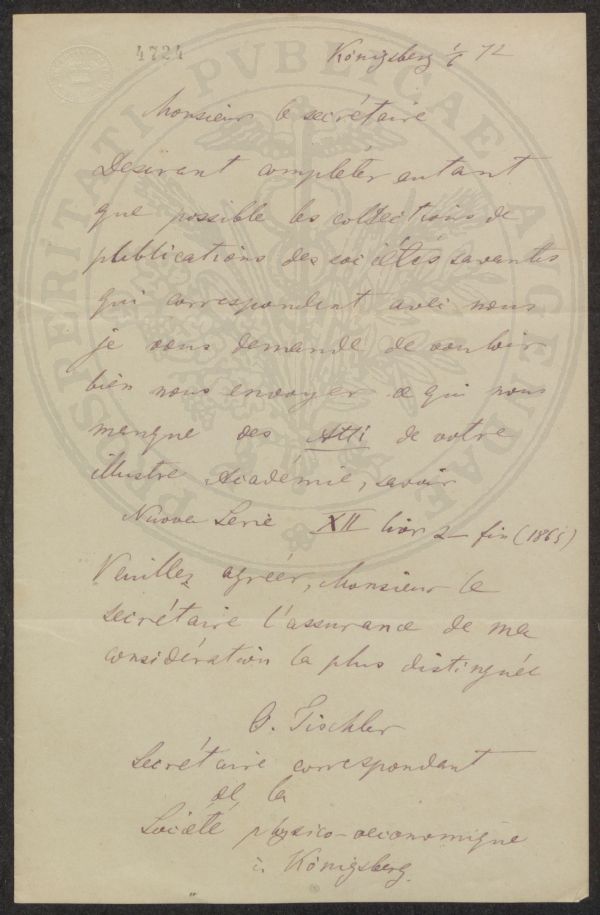 4724
Königsberg 1/6 72
Monsieur le secrétaire
Desirant compléter autant
que possible les collections de
publications des sociétés savantes
qui correspondent avec nous
je vous demande de vouloir
bien nous envoyer ce qui nous
manque des Atti de votre
illustre Académie, savoir
Nuova Serie XII livr 2 - fin (1865)
Veuillez agréer, Monsieur le
secrétaire l'assurance de ma
considération la plus distinguée
O. Tischler
Secrétaire correspondant
de la
Société physico-oeconomique
à Königsberg.
PROSPERITATI PVBLICAE AVGENDAE